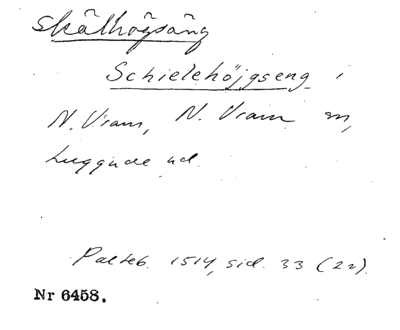 Skälhögsäng
Schielehöjgseng i
N. Vram, N. Vram sn,
Luggude hd.
Palteb. 1514, sid. 33 (2v).
Nr 6458.